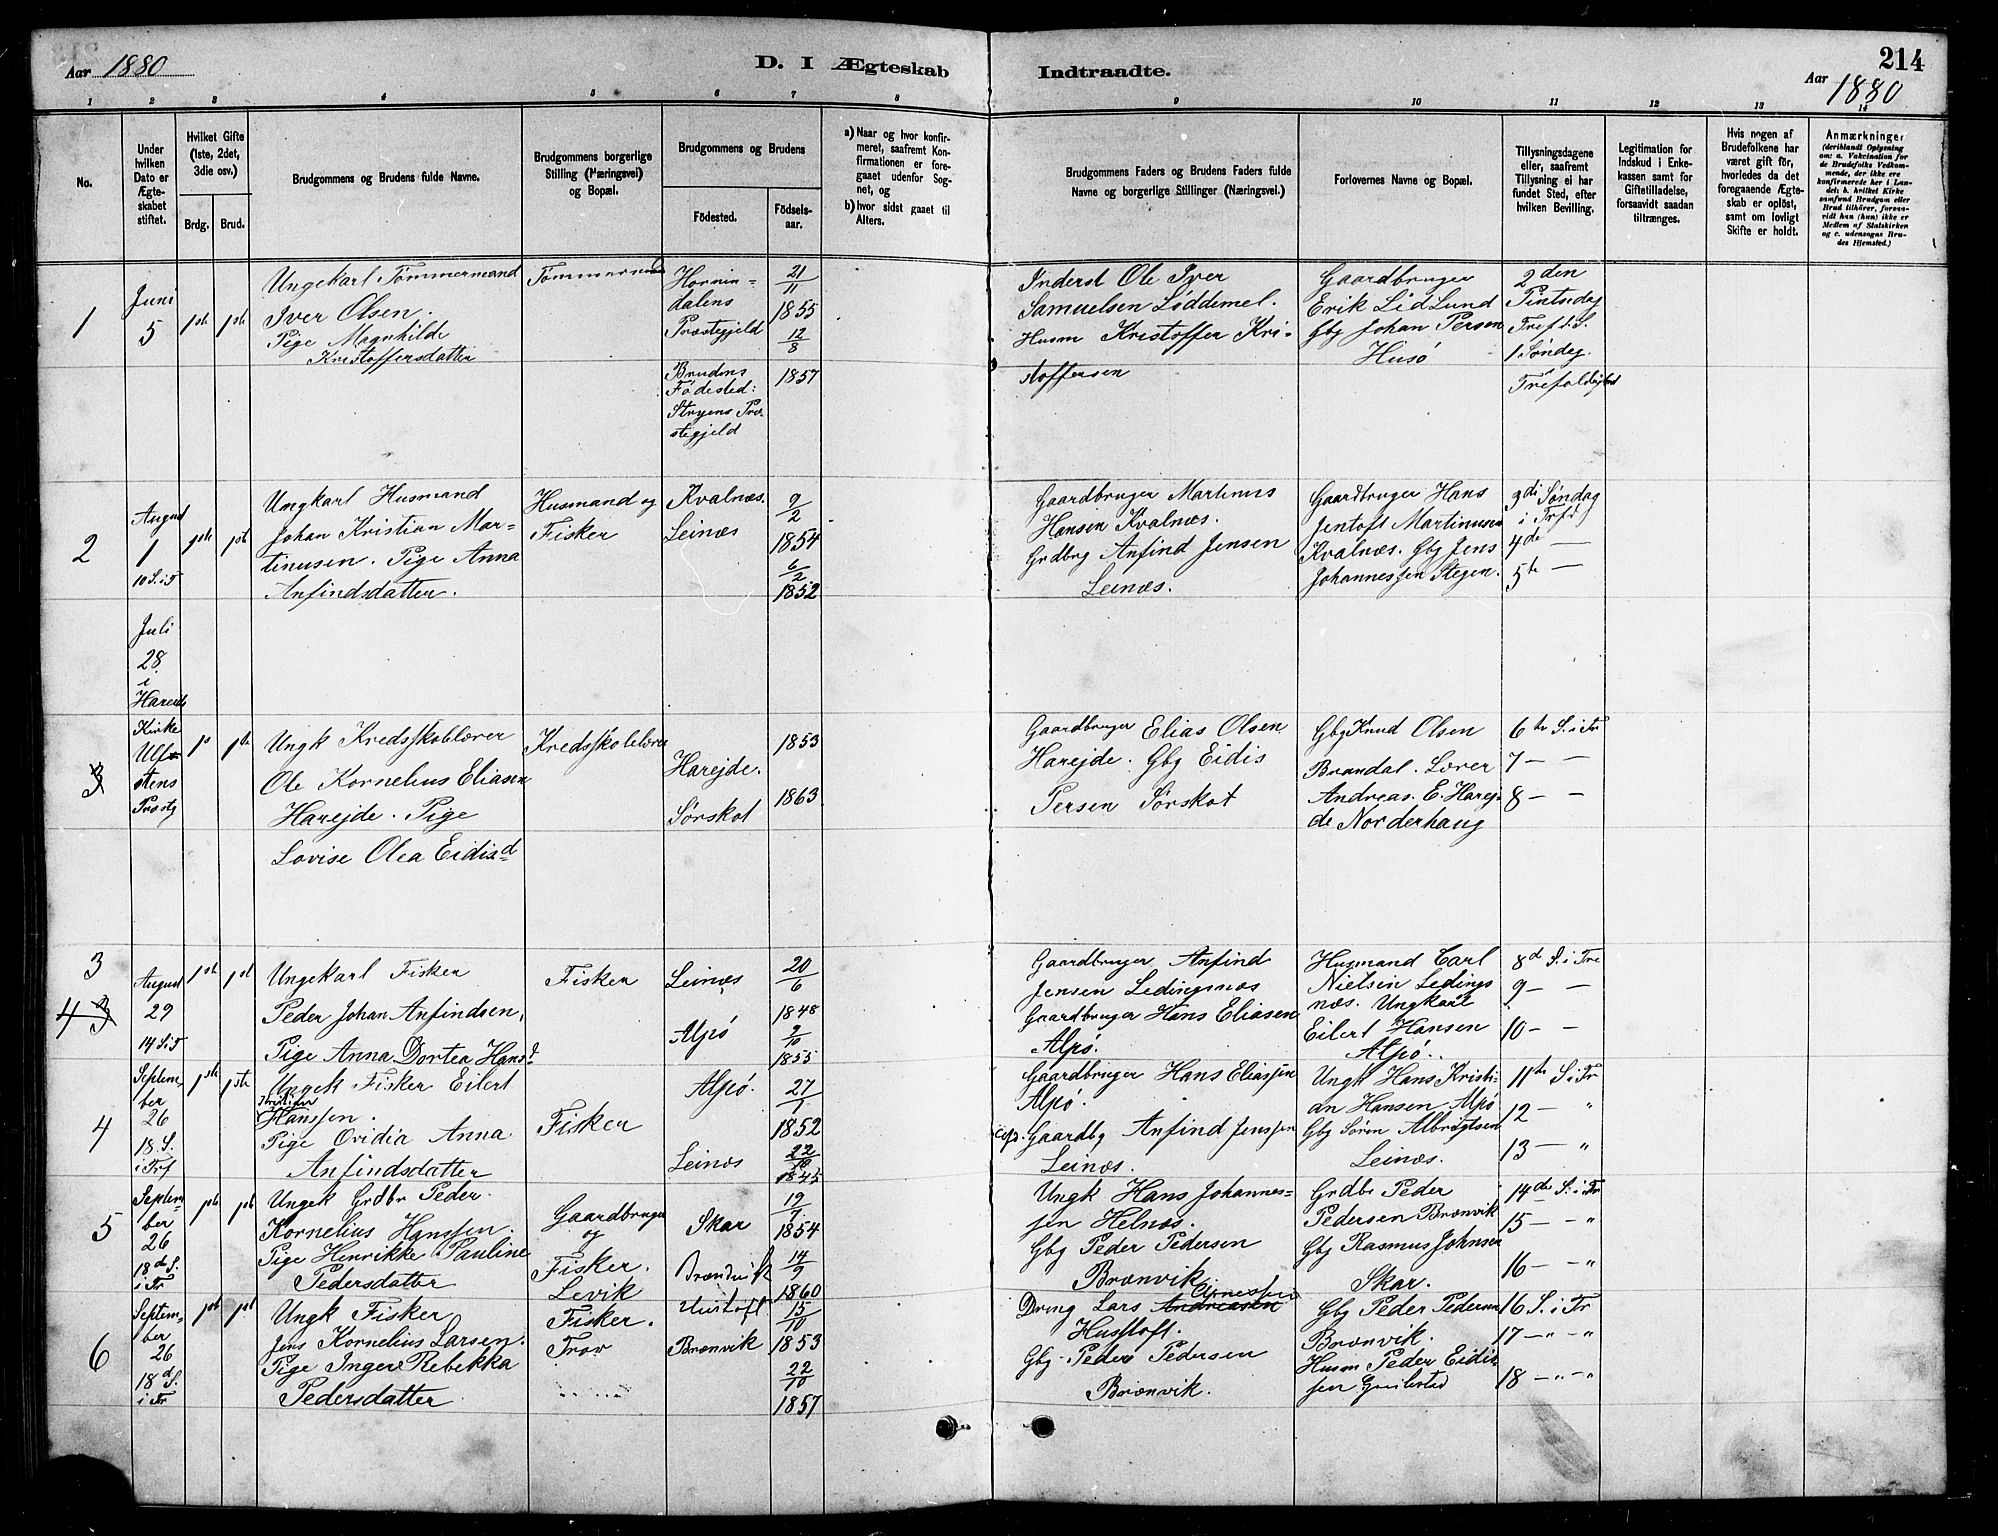 Aar 1880
D. I Ægteskab Indtraadte.
214
Aar 1880
1 2 3 4 5 6 7 8 9 10 11 12 13 14
No.
Under hvilken Dato er Ægteskabet stiftet.
Hvilket Gifte (1ste, 2det, 3die osv.)
Brdg. Brud.
Brudgommens og Brudens fulde Navne.
Brudgommens borgerlige Stilling (Næringsvei) og Bopæl.
Brudgommens og Brudens
Födested. Födselsaar.
a) Naar og hvor konfirmeret, saafremt Konfirmationen er foregaaet udenfor Sognet, og
b) hvor sidst gaaet til Alters.
Brudgommens Faders og Brudens Faders fulde Navne og borgerlige Stillinger (Næringsvei.)
Forlovernes Navne og Bopæl.
Tillysningsdagene eller, saafremt Tillysning ei har fundet Sted, efter hvilken Bevilling.
Legitimation for Indskud i Enkekassen samt for Giftetilladelse, forsaavidt saadan tiltrænges.
Hvis nogen af Brudefolkene har været gift før, hvorledes da det foregaaende Ægteskab er oplöst, samt om lovligt Skifte er holdt.
Anmærkninger (deriblandt Oplysning om: a. Vakcination for de Brudefolks Vedkommende, der ikke ere konfirmerede her i Landet; b. hvilket Kirkesamfund Brudgom eller Brud tilhörer, forsaavidt han (hun) ikke er Medlem af Statskirken og c. udensogns Brudes Hjemsted.)
1
Juni
5
1ste 1ste
Ungekarl Tømmermand
Iver Olsen.
Pige Magnhilde
Kristoffersdatter
Tømmermand
Hornin-
dalens
Præstegjeld
Brudens
Fødested:
Stryens Præ-
stegjeld
21/11
1855
12/8
1857
Inderst Ole Iver
Samuelsen Løddemel.
Husm Kristoffer Kri-
stoffersen
Gaardbruger
Erik Lid Lund
Gbg Johan Persen
Husø
2den
Pintsdag
Tref. S.
1 Søndag
Trefoldighed
2
August
1
10 S. i T
1ste 1st
Ungkarl Husmand
Johan Kristian Mar-
tinusen. Pige Anna
Anfindsdatter.
Husmand og
Fisker
Kvalnæs.
Leinæs
9/2
1854
6/2
1852
Gaardbruger Martinus
Hansen Kvalnæs.
Grdbrg Anfind Jensen
Leinæs.
Gaardbruger Hans
Jentoft Martinusen
Kvalnæs. Gbg Jens
Johannessen Stegen.
3di Søndag
i Trfd
4de —
5te —
Juli
28
i
Hareids
Kirke
Ulf-
stens
Præstg
3
1ste
Ungk Kredsskolelærer
Ole Kornelius Eliasen
Harejde. Pige
Lovise Olea Eidisd
Kredsskolelærer
Harejde.
Sørskot
1853
1863
Gaardbruger Elias Olsen
Harejde. Gbg Eidis
Persen Sørskot
Gbg Knud Olsen
Brandal. Lærer
Andreas. E. Harej-
de Norderhaug
6te S. i Tr
7 — —
8 — —
3
4 3
August
29
14 S i T
1ste 1st
Ungekarl Fisker
Peder Johan Anfindsen,
Pige Anna Dortea Hansd
Fisker
Leinæs
Alpø
20/6
1848
9/10
1855
Gaardbruger Anfind
Jensen Ledingsnæs
Gaardbruger Hans Eliasen
Alpø.
Husmand Carl
Nielsen Ledings
næs. Ungkarl
Eilert Hansen
Alpø.
8d S. i Tre
9 — —
10 — —
4
Septem
ber
26
18. S.
i Trf
1ste 1ste
Ungek Fisker Eilert
Kristian
Hanssen.
Pige Ovidia Anna
Anfindsdatter
Fisker
Alpø.
Leinæs
27/1
1852
22/10
1845
Gaardbruger Hans Eliassen
Alpø.
Gaardbg Anfind Jenssen
Leinæs.
Ungk Hans Kristi-
an Hansen Alpø
Gbg Søren Albrigtsen
Leinæs.
11te S i Tr
12 — "
13 — "
5
Septem-
ber
26
18de S.
i Tr
1ste 1ste
Ungek Grdbr Peder
Kornelius Hanssen.
Pige Henrikke Pauline
Pedersdatter
Gaardbruger
og
Fisker.
Levik
Skar
Brændvik
19/7
1854
14/9
1860
Ungk Hans Johannes-
sen Helnæs.
Gbg Peder Pedersen
Brænvik
Grdbr Peder
Pedersen Brænvik
Gbg Rasmus Johnsen
Skar.
14de S. i Tr
15 — — "
16 — — "
6
Septem-
ber
26
18d S.
i Tr
1st 1st
Ungk Fisker
Jens Kornelius Larsen.
Pige Inger Rebekka
Pedersdatter
Fisker.
Trov
Hustoft
Brænvik
15/10
1853
22/10
1857
Dreng Lars Andreasen Arnessen
Husstoft.
Gbg Peder Pedersen
Brænvik.
Gbg Peder Pedersen
Brænvik.
Husm Peder Eidis
sen
16 S. i Tr
17 — " — "
18 — " — "